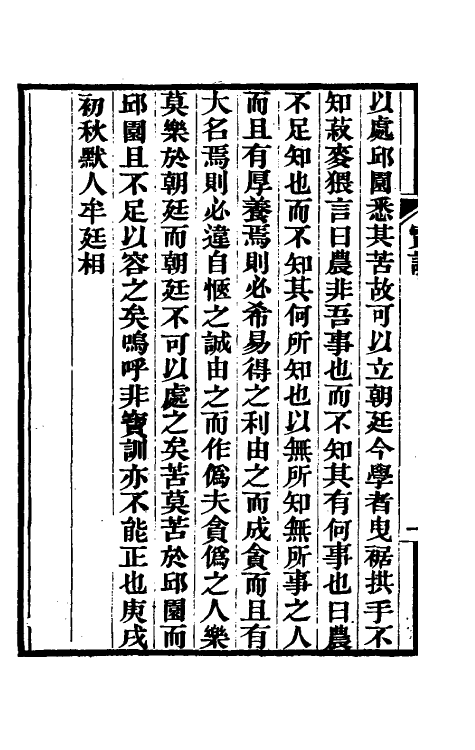 寶訓
一
以處邱園悉其苦故可以立朝廷今學者曳裾拱手不
知菽麥猥言曰農非吾事也而不知其有何事也曰農
不足知也而不知其何所知也以無所知無所事之人
而且有厚養焉則必希易得之利由之而成貪而且有
大名焉則必違自愜之誠由之而作僞夫貪僞之人樂
莫樂於朝廷而朝廷不可以處之矣苦莫苦於邱園而
邱園且不足以容之矣嗚呼非寶訓亦不能正也庚戌
初秋默人牟廷相